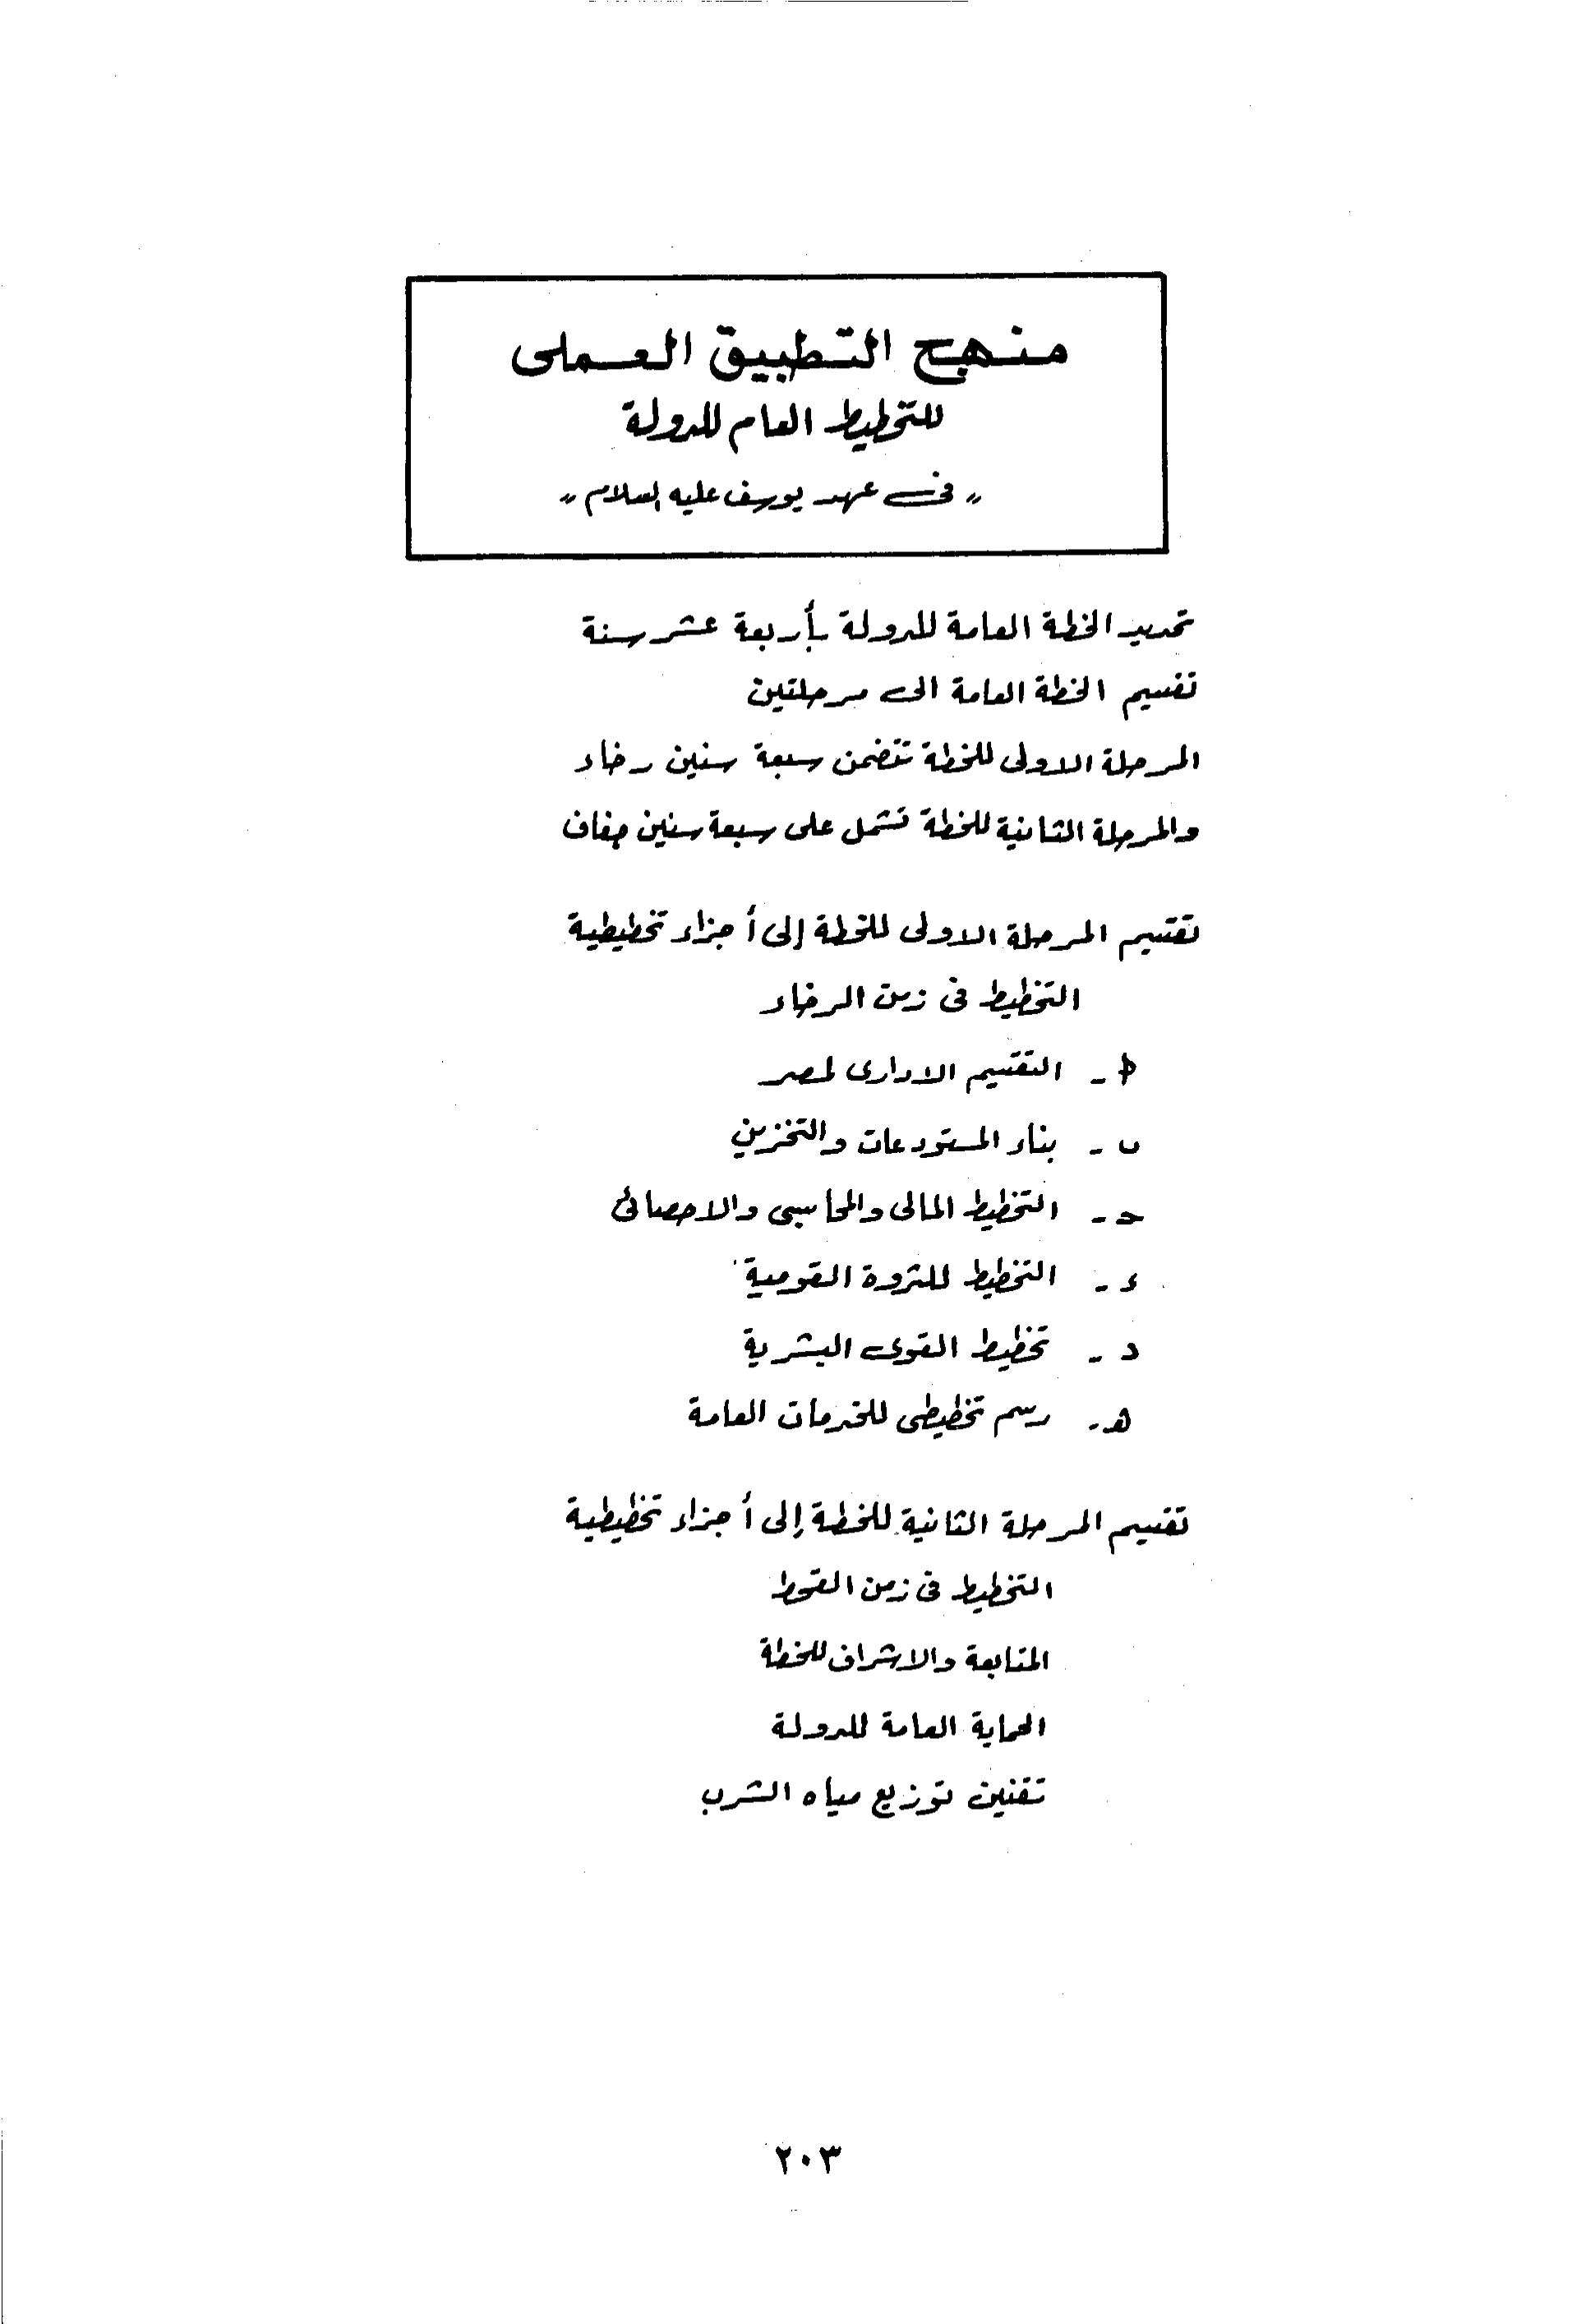 منهج التطبيق العملى
للتخطيط العام للدولة
" فى عهد يوسف عليه السلام "
تحديد الخطة العامة للدولة بأربعة عشر سنة
تقسيم الخطة العامة الى مرحلتين
المرحلة الاولى للخطة تتضمن سبعة سنين رخاء
والمرحلة الثانية للخطة تشمل على سبعة سنين جفاف
تقسيم المرحلة الاولى للخطة إلى أجزاء تخطيطية
التخطيط فى زمن الرخاء
أ - التقسيم الادارى لمصر
ب - بناء المستودعات والتخزين
ح - التخطيط المالى والمحاسبى والاحصائى
ء - التخطيط للثروة القومية
د - تخطيط القوى البشرية
هـ - رسم تخطيطى للخدمات العامة
تقسيم المرحلة الثانية للخطة إلى أجزاء تخطيطية
التخطيط فى زمن القحط
المتابعة والاشراف للخطة
الحماية العامة للدولة
تقنين توزيع مياه الشرب
٢٠٣